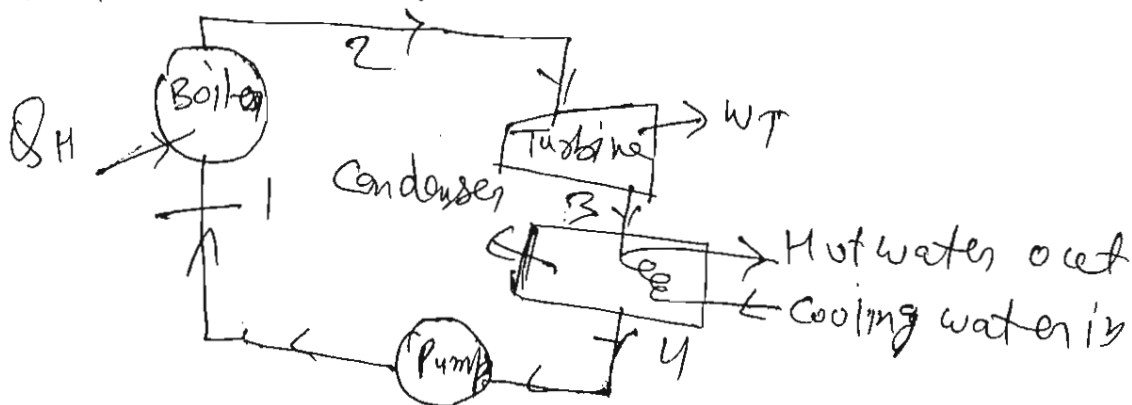 2
Boiler
QH
Turbine
WT
Condenser
1
3
Hot water out
Cooling water in
4
Pump